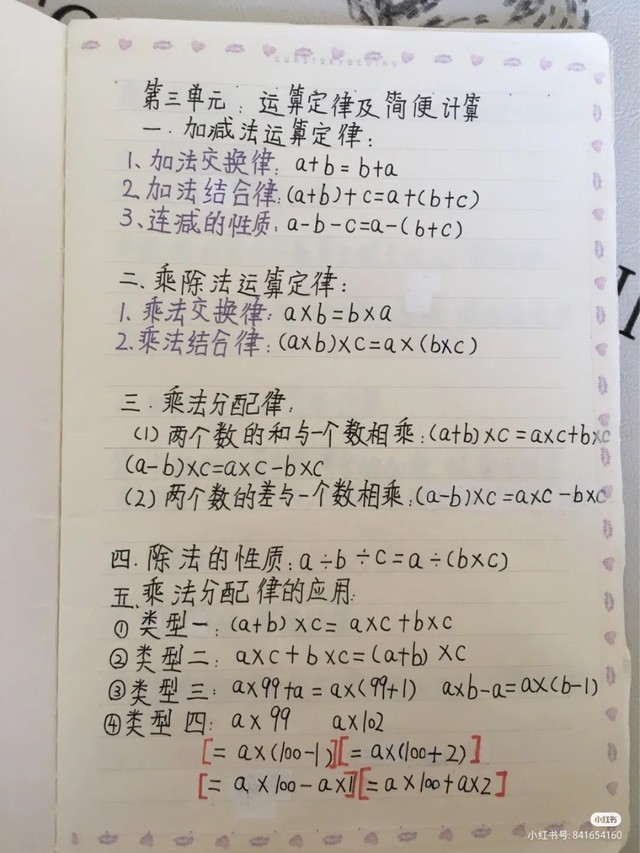 第三单元：运算定律及简便计算
一.加减法运算定律：
1、加法交换律：a+b=b+a
2.加法结合律：(a+b)+c=a+(b+c)
3、连减的性质：a-b-c=a-(b+c)
二、乘除法运算定律：
1.乘法交换律：a×b=b×a
2.乘法结合律：(a×b)×c=a×(b×c)
三.乘法分配律：
(1)两个数的和与一个数相乘：(a+b)×c=a×c+b×c
(a-b)×c=a×c-b×c
(2)两个数的差与一个数相乘：(a-b)×c=a×c-b×c
四.除法的性质：a÷b÷c=a÷(b×c)
五、乘法分配律的应用：
①类型一：(a+b)×c=a×c+b×c
②类型二：a×c+b×c=(a+b)×c
③类型三：a×99+a=a×(99+1) a×b-a=a×(b-1)
④类型四：a×99 a×102
[=a×(100-1)][=a×(100+2)]
[=a×100-a×1][=a×100+a×2]
小红书
小红书号：841654160